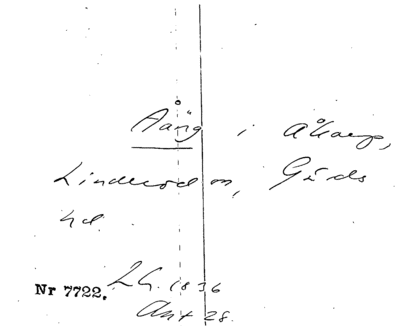 Aång i Åkarp,
Linderöd sn, Gärds
hd.
LG. 1836
Nr 7722.
Akt 28.